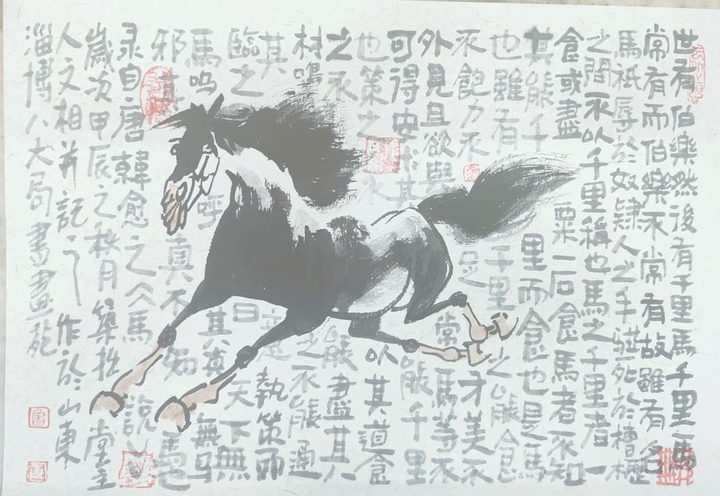 世有伯樂然後有千里馬千里馬
常有而伯樂不常有故雖有名
馬祇辱於奴隸人之手駢死於槽櫪
之間不以千里稱也馬之千里者一
食或盡粟一石食馬者不知
其能千里而食也是馬
也雖有千里之能食
不飽力不足才美不
外見且欲與常馬等不
可得安求其能千里
也策之不以其道食
之不能盡其
材鳴之不能通
其意執策而
臨之曰天下無
馬嗚呼其真無马
邪其真不知馬也
录自唐韓愈之馬説
歲次甲辰之秋月築拙堂主
人文相并記之作於山東
淄博八大局書畫苑